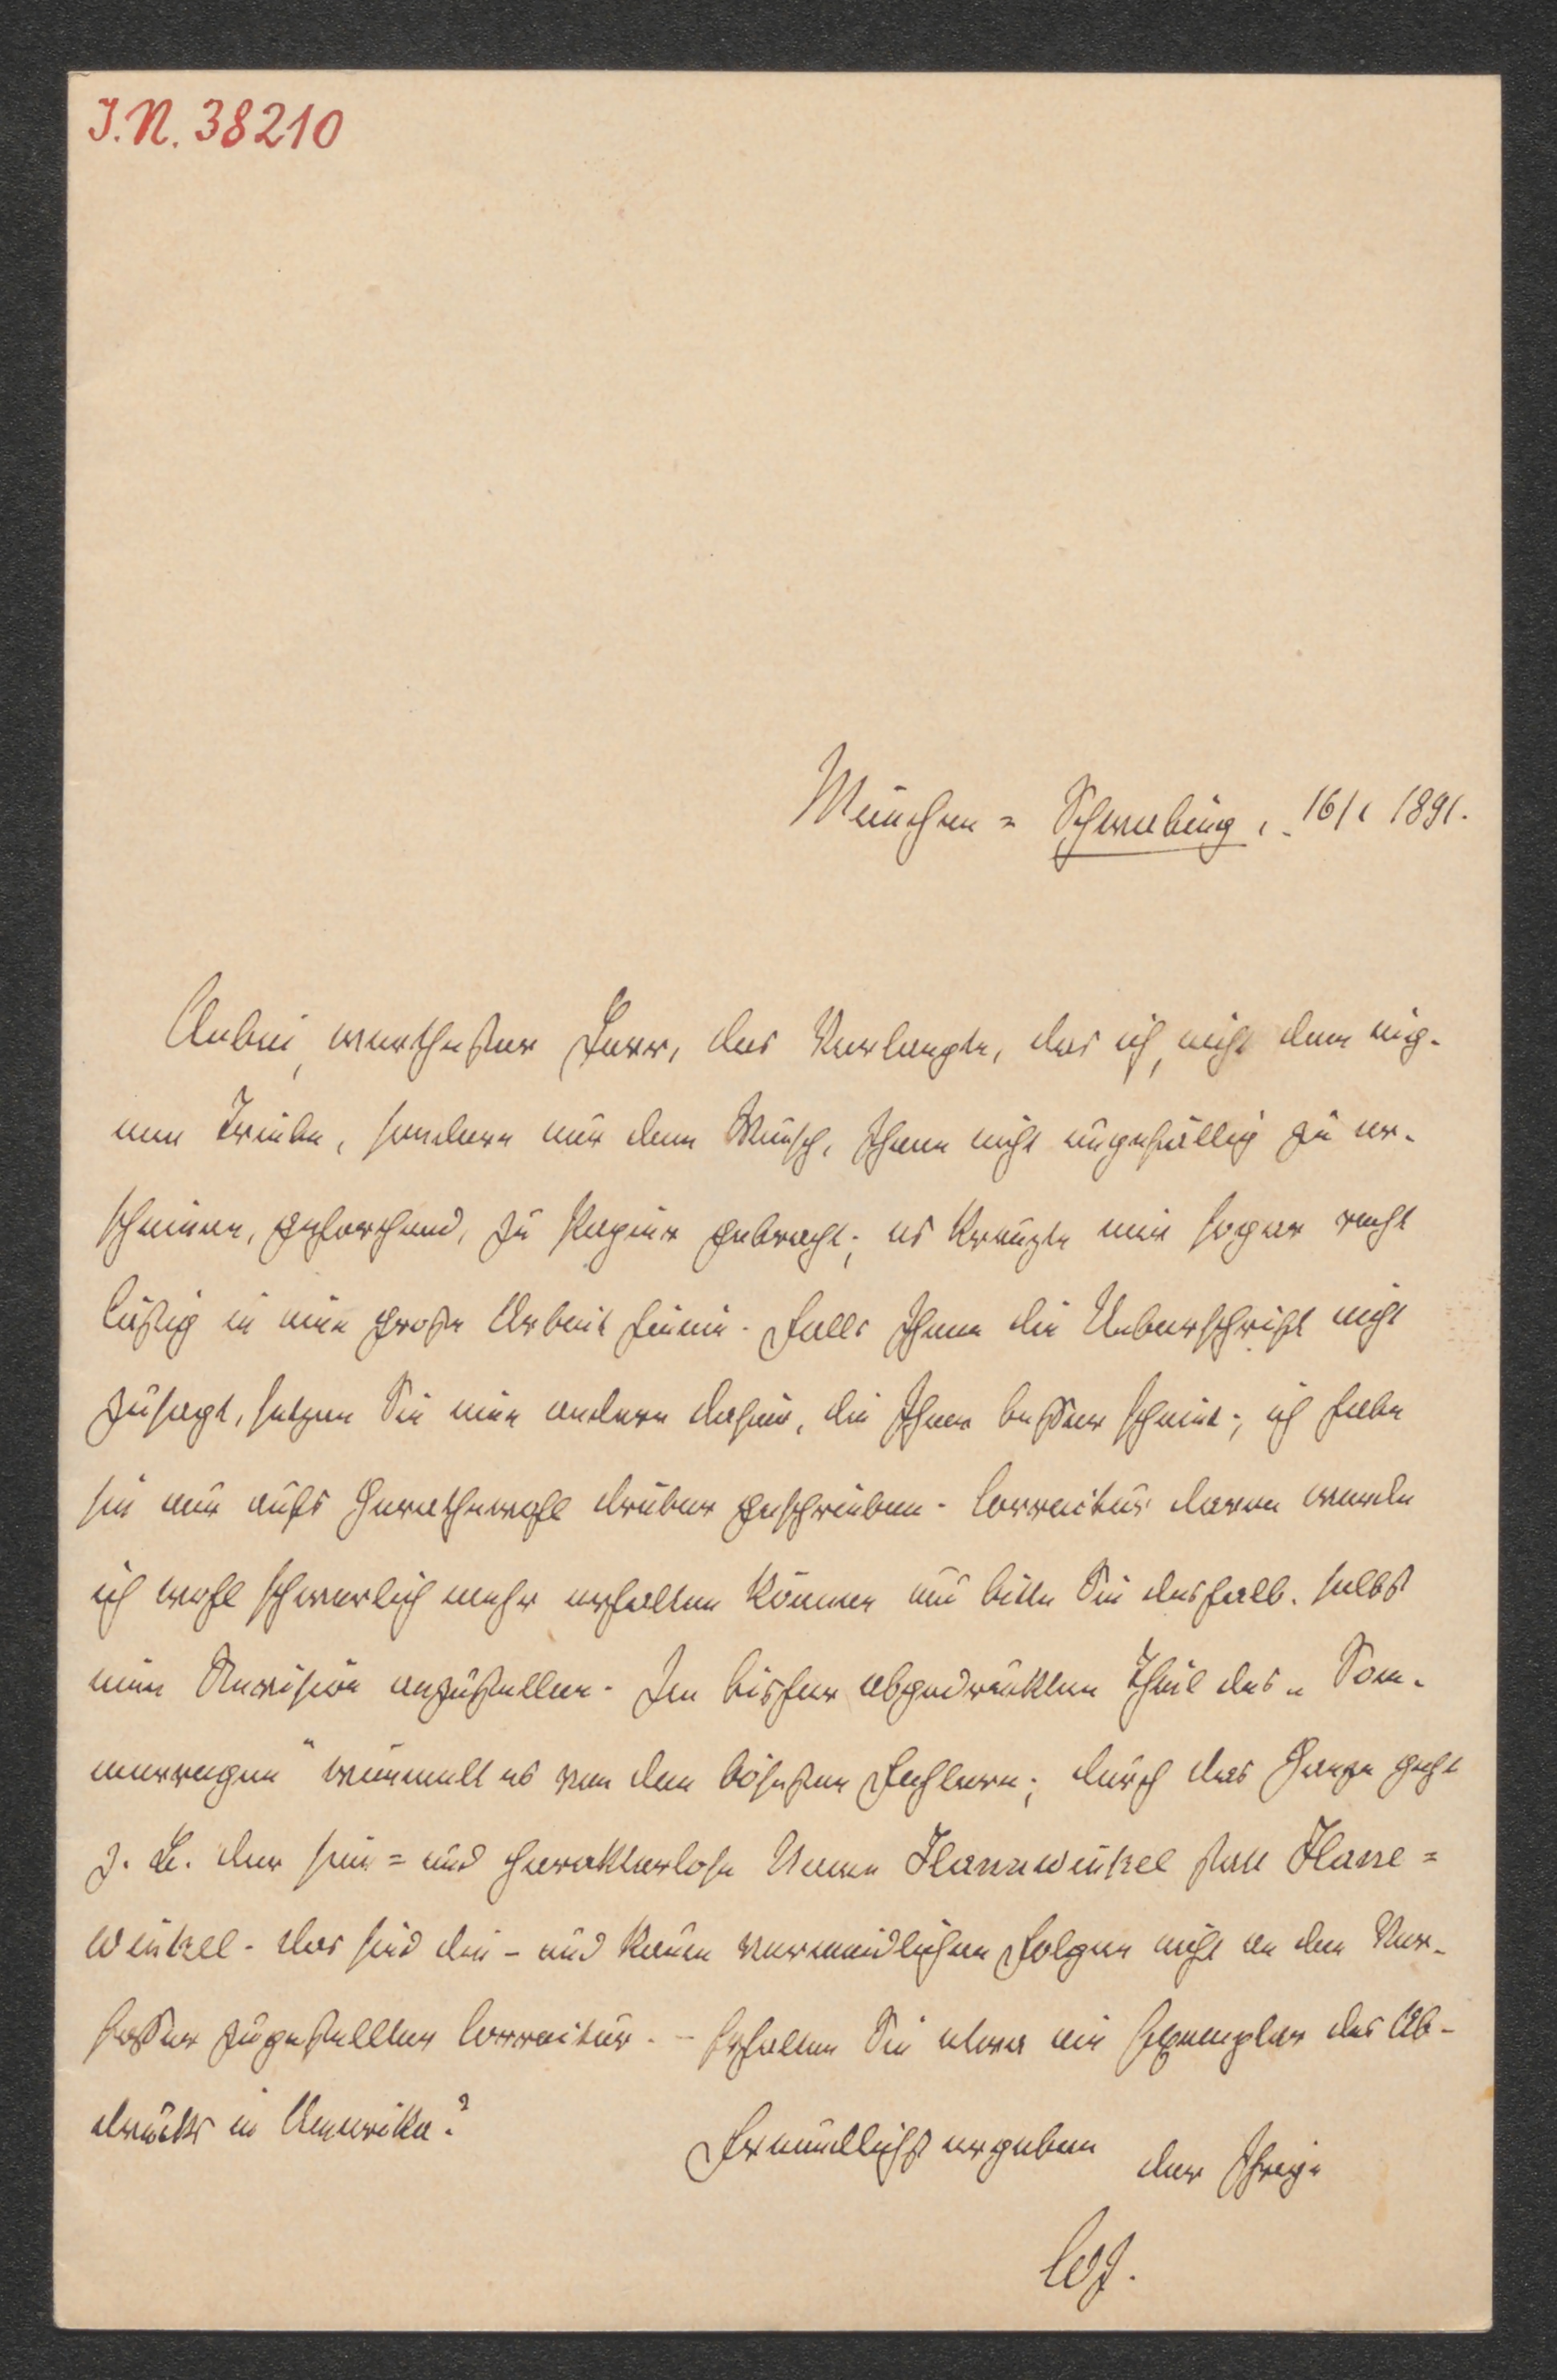 J.N. 38210
München = Schwabing, 16/1 1891.
Anbei, werthester Herr, das Verlangte, das ich, nicht dem eig-
nen Triebe, sondern nur dem Wunsch, Ihnen nicht ungefällig zu er-
scheinen, gehorchend, zu Papier gebracht; es kreuzte mir sogar recht
lästig in eine große Arbeit hinein. Falls Ihnen die Ueberschrift nicht
zusagt, setzen Sie eine andere dahin, die Ihnen besser scheint; ich habe
sie nur aufs Gerathewohl drüber geschrieben. Correctur davon werde
ich wohl schwerlich mehr erhalten können und bitte Sie deshalb, selbst
eine Revision anzustellen. Im bisher abgedruckten Theil des „Som-
merregen" wimmelt es von den bösesten Fehlern; durch das Ganze geht
z. B. der sinn= und charakterlose Name Hannwinkel statt Harre=
winkel. Das sind die – und kaum vermeidlichen Folgen nicht an den Ver-
fasser zugestellter Correctur. – Erhalten Sie etwa ein Exemplar des Ab-
drucks in Amerika?
Freundlichst ergeben
der Ihrige
WJ.